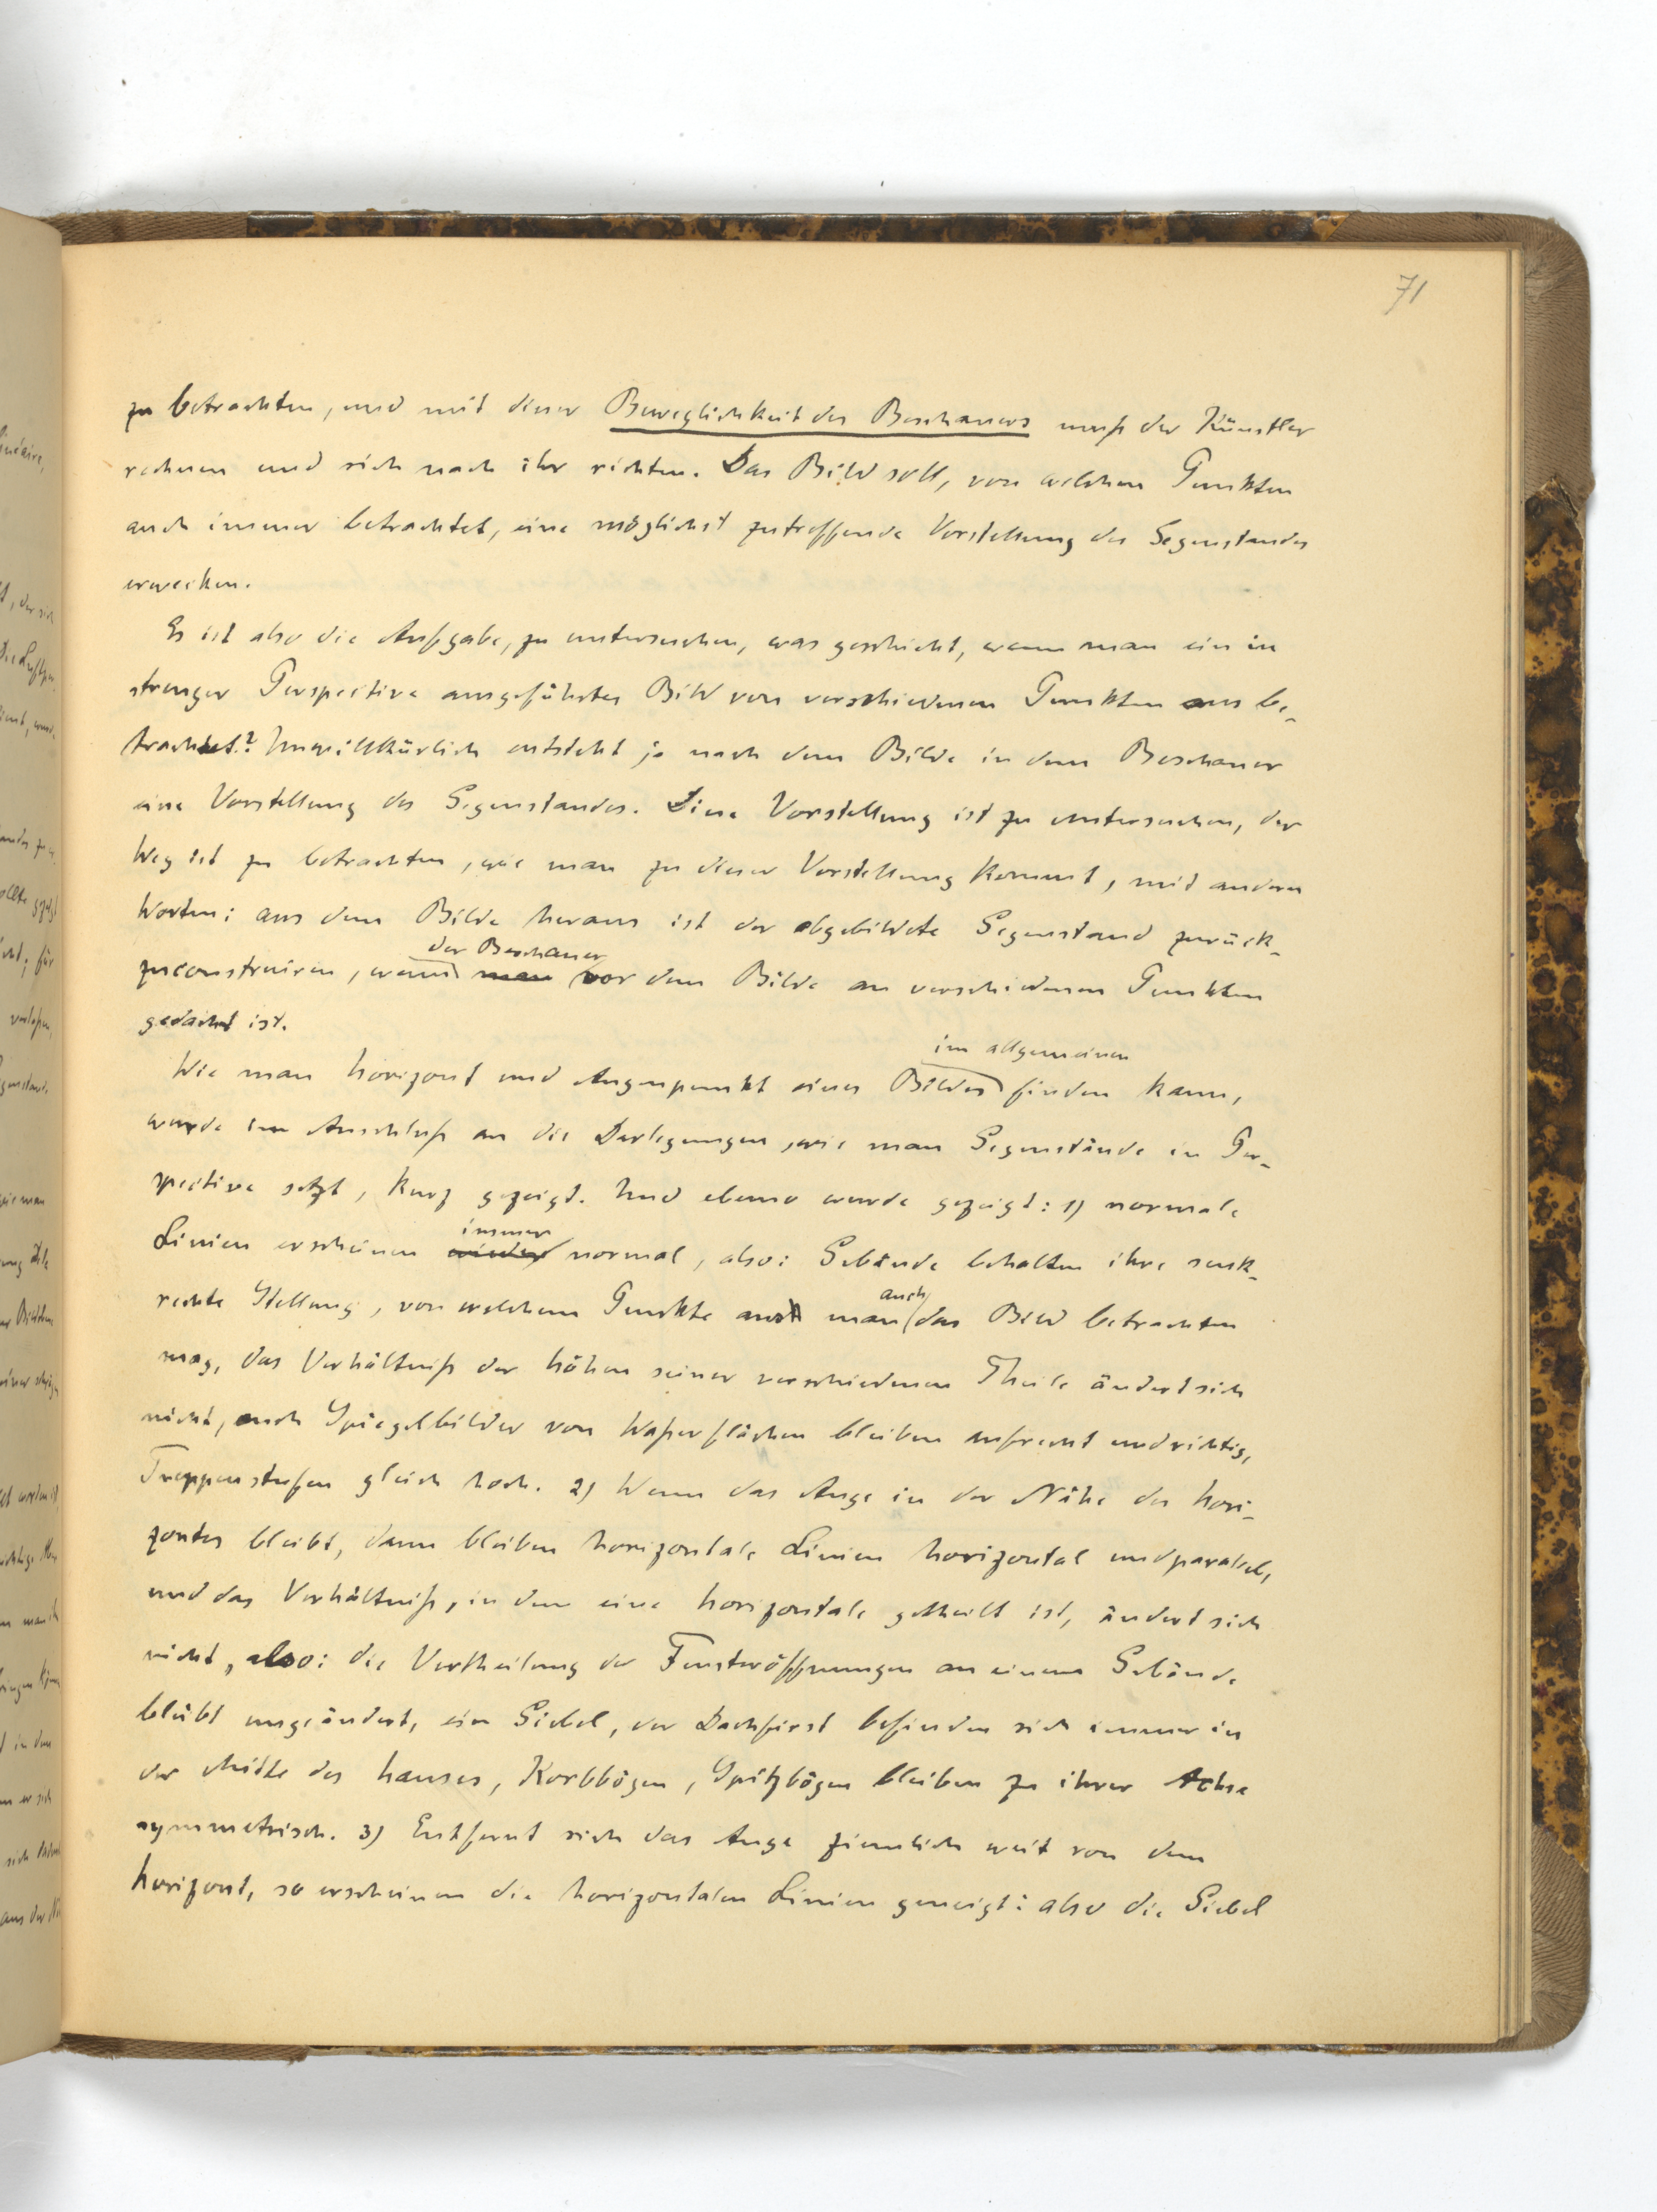 71
zu betrachten, und mit dieser Beweglichkeit des Beschauers muß der Künstler
rechnen und sich nach ihr richten. Das Bild soll, von welchen Punkten
auch immer betrachtet, eine möglichst zutreffende Vorstellung des Gegenstandes
erwecken.
Es ist also die Aufgabe, zu untersuchen, was geschieht, wenn man ein in
strenger Perspective ausgeführtes Bild von verschiedenen Punkten aus be-
trachtet? Unwillkürlich entsteht ja nach dem Bilde in dem Beschauer
eine Vorstellung des Gegenstandes. Diese Vorstellung ist zu untersuchen, der
Weg ist zu betrachten, wie man zu dieser Vorstellung kommt, mit andern
Worten: aus dem Bilde heraus ist der abgebildete Gegenstand zurück-
der Beschauer
zuconstruiren, wenn man vor dem Bilde an verschiedenen Punkten
gedacht ist.
im allgemeinen
Wie man Horizont und Augenpunkt eines Bildes finden kann,
wurde im Anschluß an die Darlegungen, wie man Gegenstände in Per-
spective setzt, kurz gezeigt. Und ebenso wurde gezeigt: 1) normale
immer
Linien erscheinen wieder normal, also: Gebäude behalten ihre senk-
auch
rechte Stellung, von welchem Punkte man das Bild betrachten
mag, das Verhältniß der Höhen seiner verschiedenen Theile ändert sich
nicht, auch Spiegelbilder von Waßerflächen bleiben aufrecht und richtig,
Treppenstufen gleich hoch. 2) Wenn das Auge in der Nähe des Hori-
zontes bleibt, dann bleiben horizontale Linien horizontal und parallel,
und das Verhältniß, in dem eine Horizontale getheilt ist, ändert sich
nicht, also: die Vertheilung der Fensteröffnungen an einem Gebäude
bleibt ungeändert, ein Giebel, der Dachfirst befinden sich immer in
der Mitte des Hauses, Korbbögen, Spitzbögen bleiben zu ihrer Achse
symmetrisch. 3) Entfernt sich das Auge ziemlich weit von dem
Horizont, so erscheinen die horizontalen Linien geneigt: also die Giebel